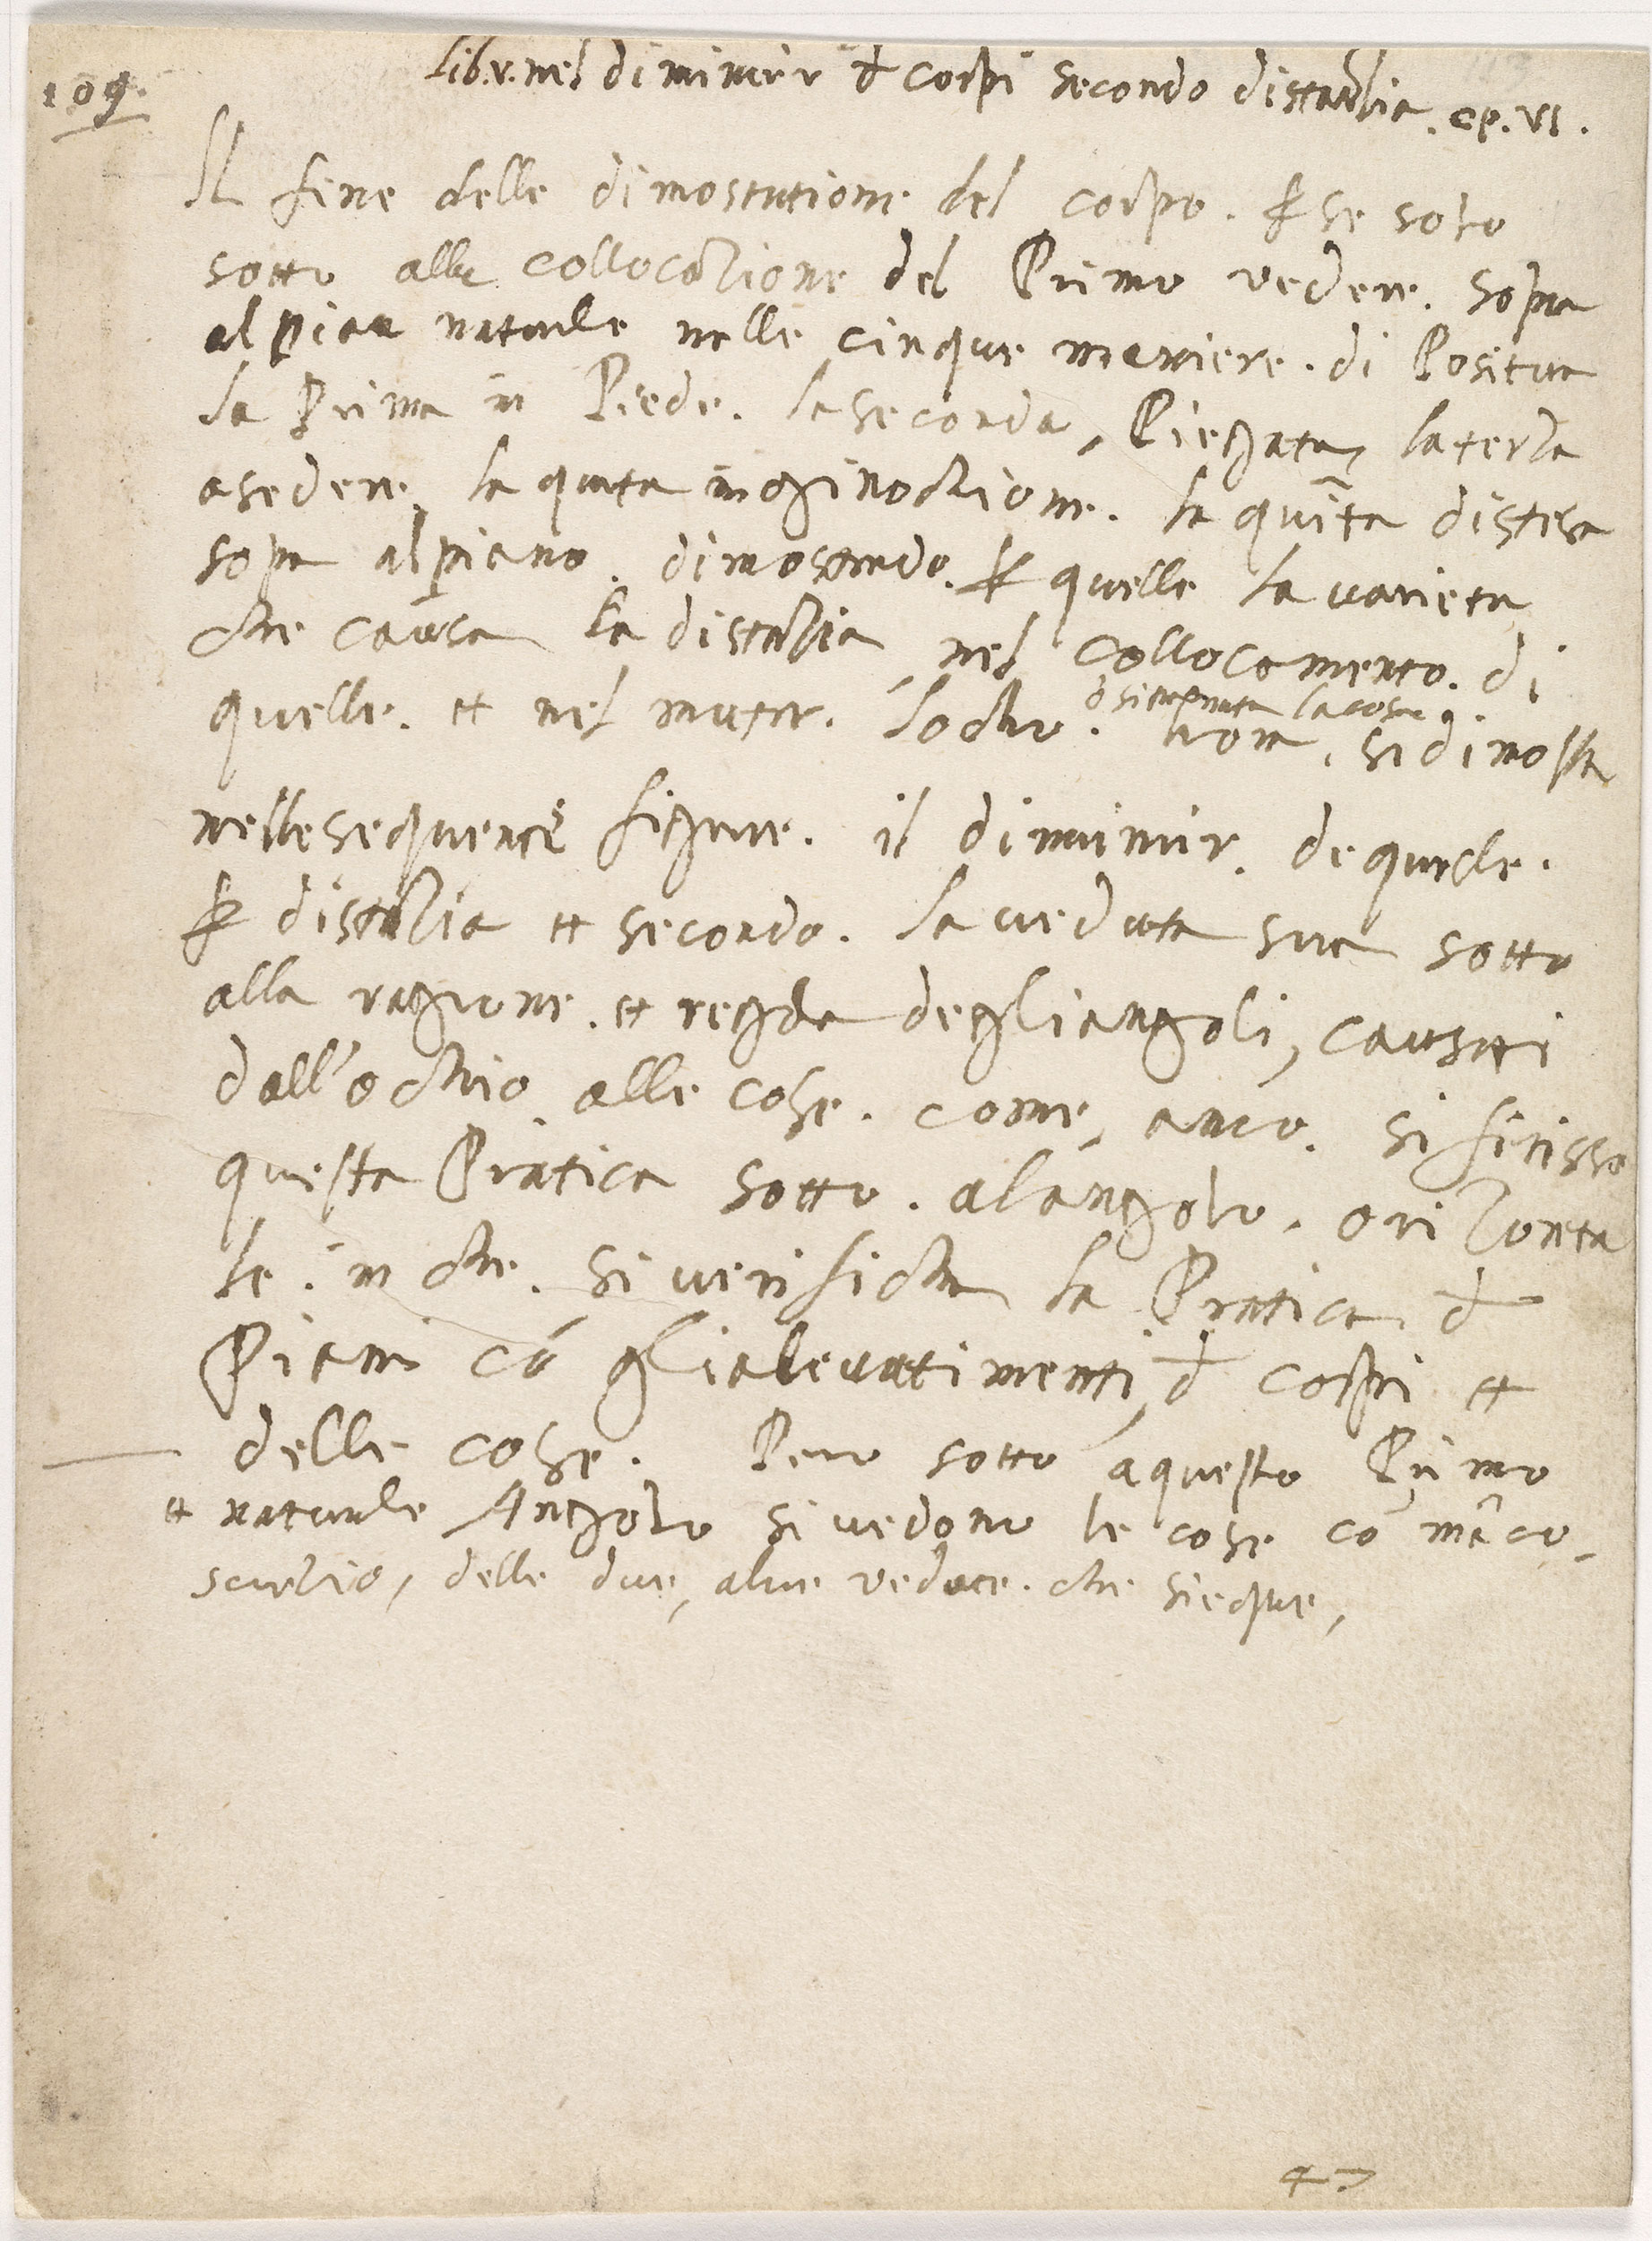 109.
lib.v. nel diminuir d corpi secondo distantia. cp. VI.
Il fine delle dimostratione del corpo. p se solo
sotto alla collocatione del Primo vedere. sopra
al pian naturale nelle cinque maniere. di Positura
la Prima in Piede. la seconda, Piegata, la terza
a sedere, la quarta inginochione. la quīta distesa
sopra al piano. dimostrando. p quelle la varieta
che causa la distātia nel collocamento. di
quelle. et nel mutar. locho. hora, si dimostra
la cosa
nelle sequente figure. il diminuir. de quelle.
p distātia et secondo. la veduta sua sotto
alla ragione. et regola degli angoli, causati
dall'ochio alle cose. come, anco. si
questa Pratica sotto. al angolo. orizonta
le. in che. si verificha la Pratica d
Piani cō gli alevatimenti, d corpi et
delle cose. Pero sotto a questo Primo
et naturale Angolo si vedono le cose cō māco.
scurtio, delle due, altre vedute. che sieque,
47